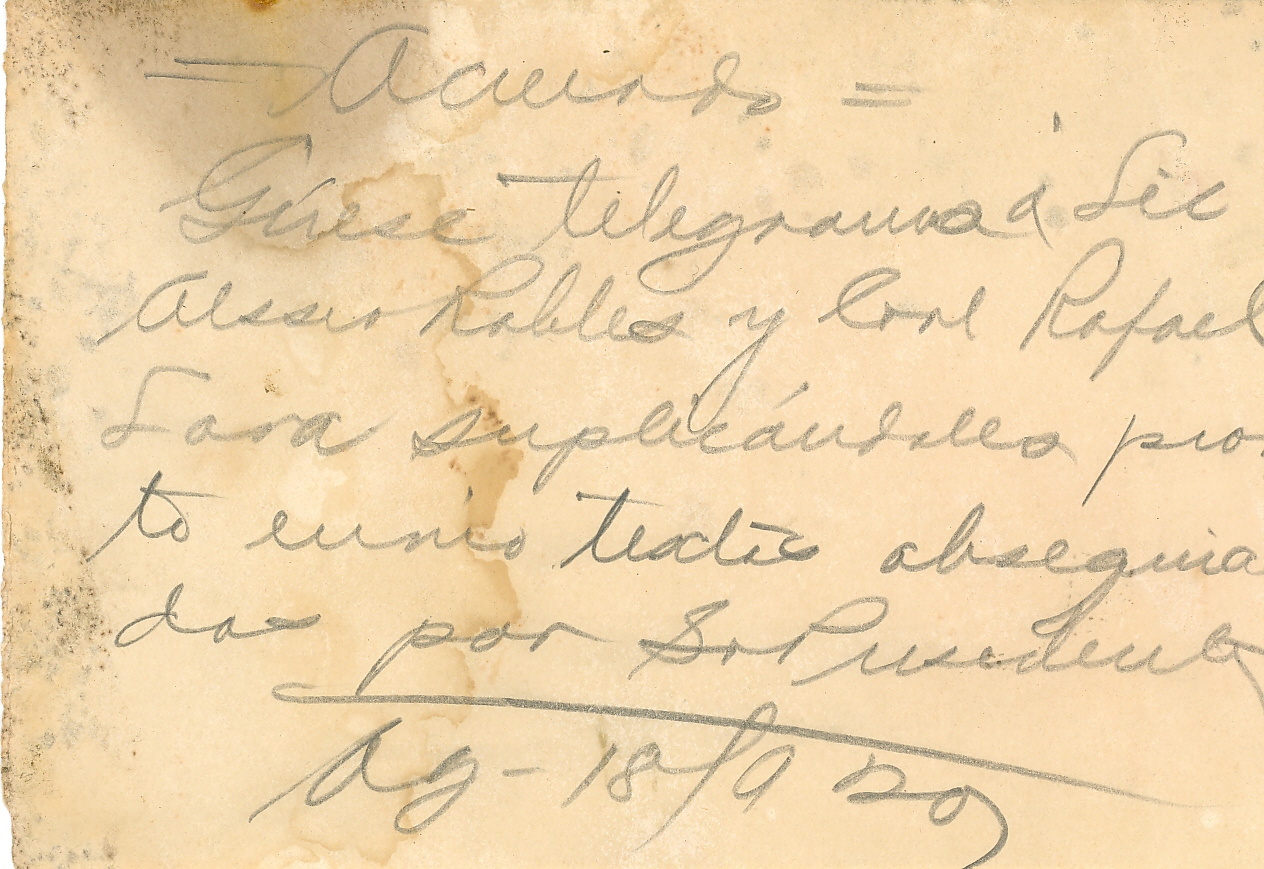 = Acuerdo =
Gírese telegrama á Lic
Alessio Robles y Corl Rafael
Lara suplicándoles pron
to envío textos obsequia
dos por Sr Presidente
Ag - 18/920